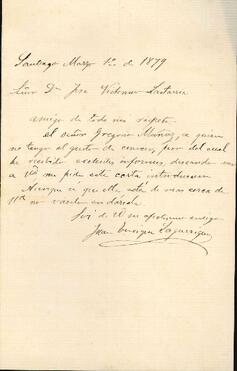 Santiago Marzo 12 de 1879
Señor Dn Jose Victorino Lastarria
amigo de todo mi respeto.
El señor Gregorio Muñoz, a quien
no tengo el gusto de conocer, pero del cual
he recibido excelentes informes, deseando ver
a Ud me pide esta carta introduccion
Aunque se que ella está de mas cerca de
Ud no vacilo en darsela
Soi de Ud su afectisimo amigo
Juan Enrique Lagarrigue